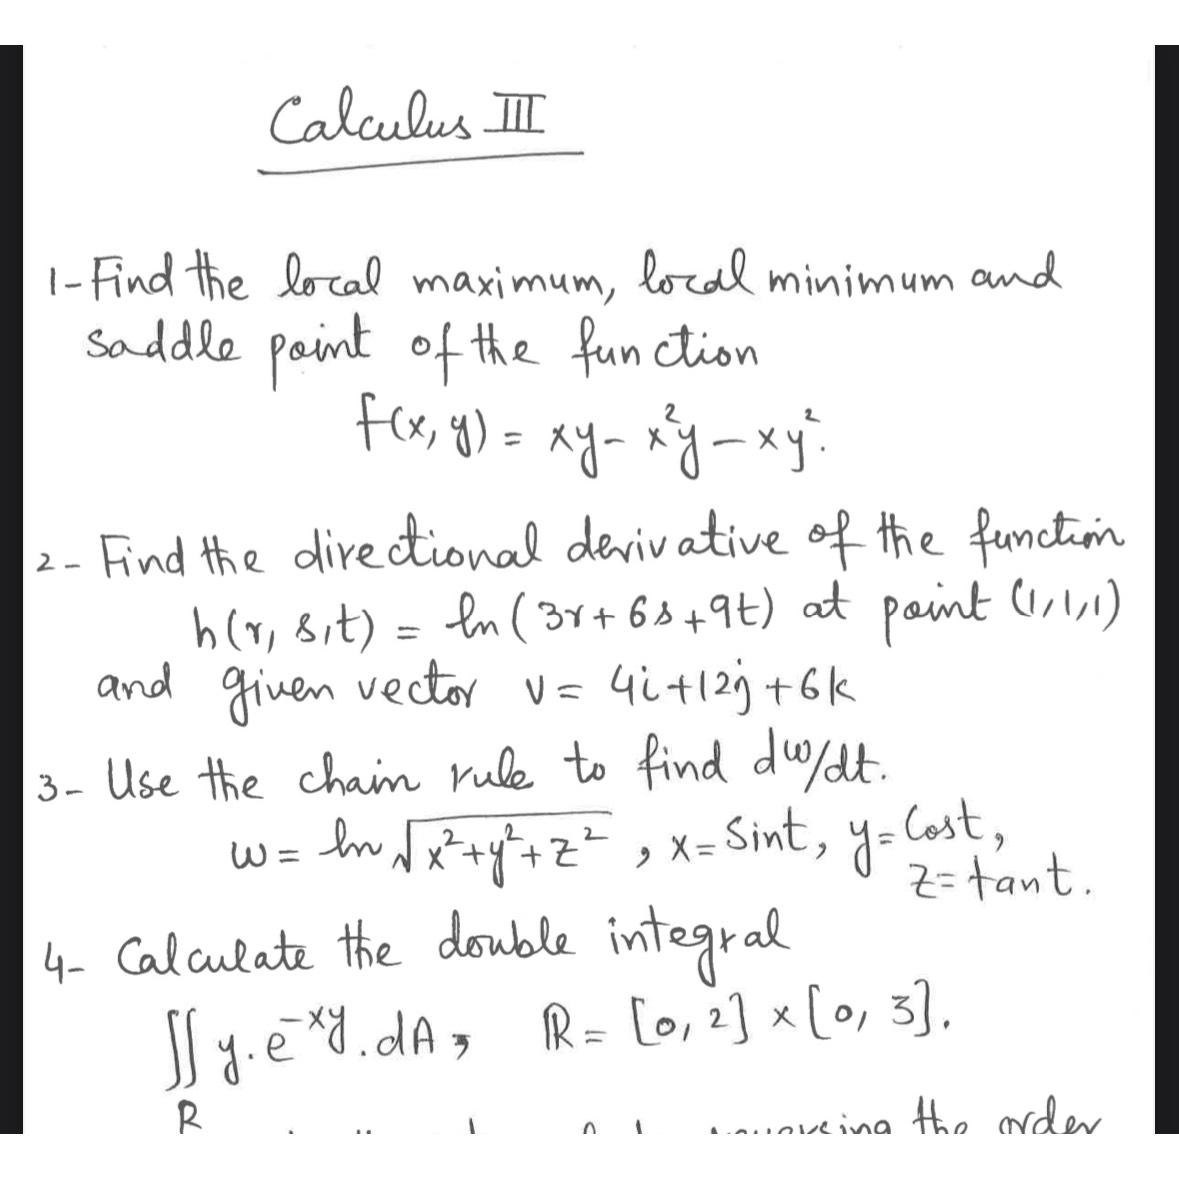 Calculus III
1- Find the local maximum, local minimum and
saddle point of the function
f(x, y) = xy - x²y - xy².
2 - Find the directional derivative of the function
h(r, s, t) = ln (3r + 6s + 9t) at point (1,1,1)
and given vector v = 4i + 12j + 6k
3 - Use the chain rule to find dw/dt.
w = ln √x² + y² + z² , x = Sint, y = Cost,
z = tant.
4- Calculate the double integral
∬ y. e⁻ˣʸ. dA , R = [0, 2] × [0, 3].
R
reversing the order